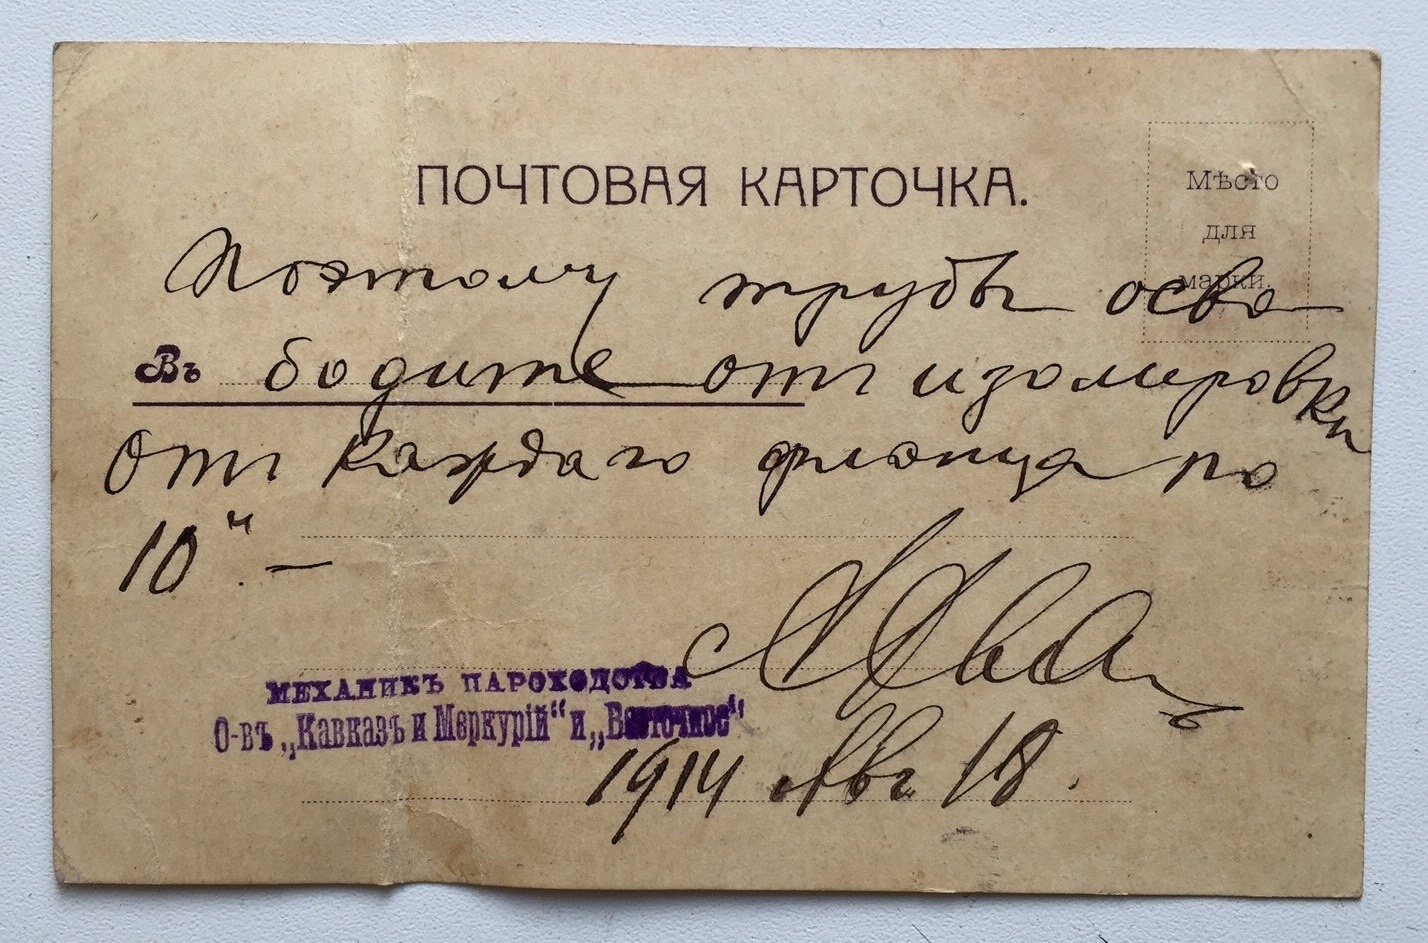 ПОЧТОВАЯ КАРТОЧКА.
Мѣсто
для
марки.
Поэтому трубы осво
Въ
бодите отъ изолировки
отъ каждаго фланца по
10". —
МЕХАНИКЪ ПАРОХОДСТВА
О-въ „Кавказъ и Меркурій“ и „Восточное“
1914 Авг 18.